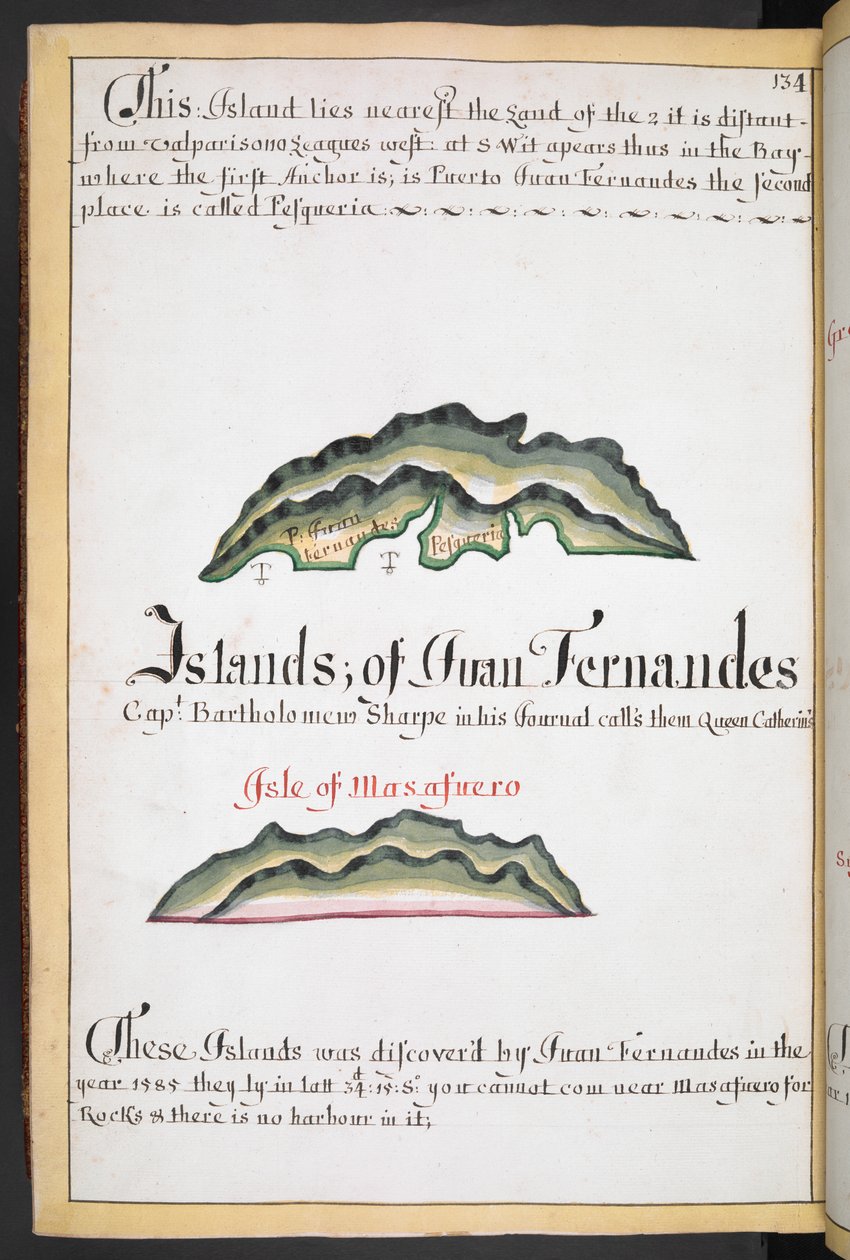 134
This: Island lies nearest the Land of the 2 it is distant-
from Valpariso 110 Leagues west: at S W it apears thus in the Bay-
where the first Anchor is; is Puerto Juan Fernandes the second
place is called Pesqueria
P: Juan
fernandes
Pesqueria
Islands; of Juan Fernandes
Capt: Bartholomew Sharpe in his Journal call's them Queen Catherin's
Isle of Masafuero
These Islands was discover'd by Juan Fernandes in the
year 1585 they ly in latt 34d:15: So: you cannot com near Masafuero for
Rocks & there is no harbour in it;